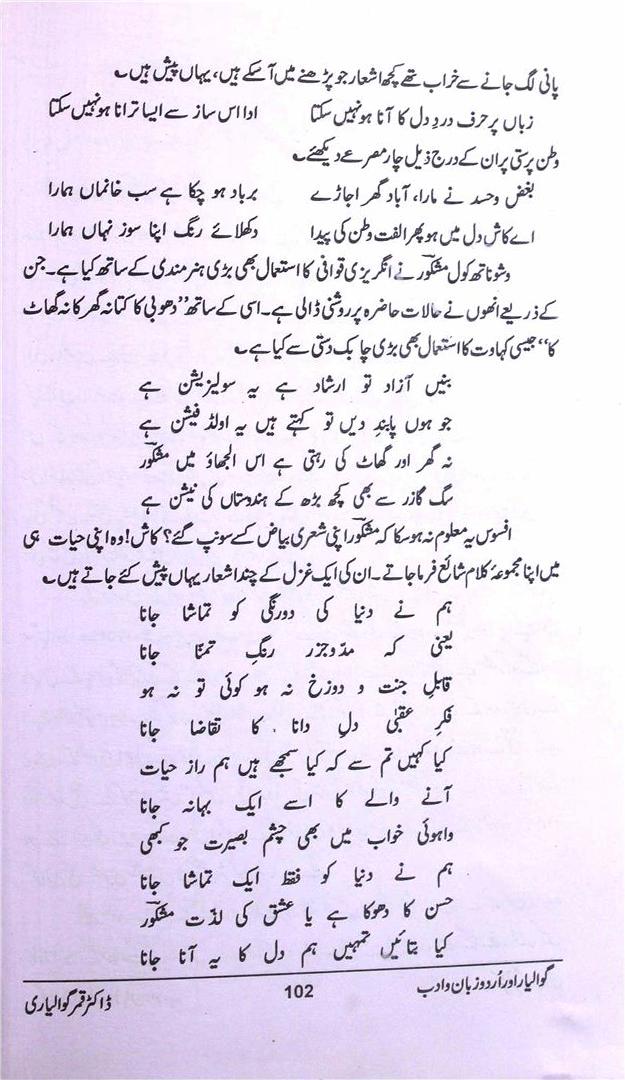 پانی لگ جانے سے خراب تھے کچھ اشعار جو پڑھنے میں آسکے ہیں، یہاں پیش ہیں۔
زباں پر حرف دردِ دل کا آنا ہو نہیں سکتا ادا اس ساز سے ایسا ترانا ہو نہیں سکتا
وطن پرستی پر ان کے درج ذیل چار مصرعے دیکھئے۔
بغض وحسد نے مارا، آباد گھر اجاڑے برباد ہو چکا ہے سب خانماں ہمارا
اے کاش دل میں ہو پھر الفت وطن کی پیدا دکھلائے رنگ اپنا سوز نہاں ہمارا
وشوناتھ کول مشکورؔ نے انگریزی قوافی کا استعمال بھی بڑی ہنرمندی کے ساتھ کیا ہے۔ جن
کے ذریعے انھوں نے حالات حاضرہ پر روشنی ڈالی ہے۔ اسی کے ساتھ ”دھوبی کا کتا نہ گھر کا نہ گھاٹ
کا“ جیسی کہاوت کا استعمال بھی بڑی چابک دستی سے کیا ہے۔
بنیں آزاد تو ارشاد ہے یہ سولیزیشن ہے
جو ہوں پابند دیں تو کہتے ہیں یہ اولڈ فیشن ہے
نہ گھر اور گھاٹ کی رہتی ہے اس الجھاؤ میں مشکورؔ
سگ گازر سے بھی کچھ بڑھ کے ہندوستاں کی نیشن ہے
افسوس یہ معلوم نہ ہو سکا کہ مشکورؔ اپنی شعری بیاض کسے سونپ گئے؟ کاش! وہ اپنی حیات ہی
میں اپنا مجموعۂ کلام شائع فرما جاتے۔ ان کی ایک غزل کے چند اشعار یہاں پیش کئے جاتے ہیں۔
ہم نے دنیا کی دورنگی کو تماشا جانا
یعنی کہ مدّ و جزر رنگِ تمنّا جانا
قابلِ جنت و دوزخ نہ ہو کوئی تو نہ ہو
فکرِ عقبیٰ دلِ دانا کا تقاضا جانا
کیا کہیں تم سے کہ کیا سمجھے ہیں ہم راز حیات
آنے والے کا اسے ایک بہانہ جانا
وا ہوئی خواب میں بھی چشم بصیرت جو کبھی
ہم نے دنیا کو فقط ایک تماشا جانا
حسن کا دھوکا ہے یا عشق کی لذّت مشکورؔ
کیا بتائیں تمہیں ہم دل کا یہ آنا جانا
گوالیار اور اُردو زبان و ادب 102 ڈاکٹر قمر گوالیاری